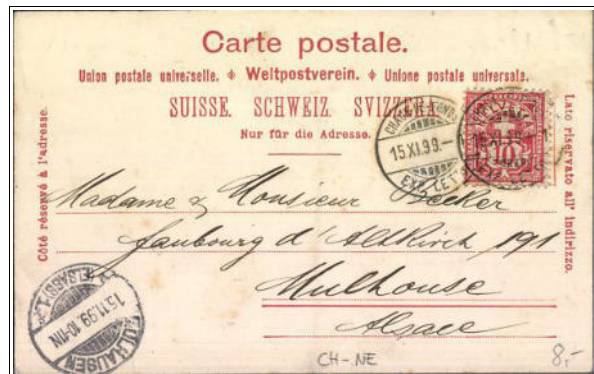 Carte postale.
Union postale universelle. ⬥ Weltpostverein. ⬥ Unione postale universale.
SUISSE. SCHWEIZ. SVIZZERA.
Nur für die Adresse.
Côté réservé à l'adresse.
Lato riservato all' indirizzo.
15.XI.99.–
EXP. LETT.
15.XI.99
10
Madame & Monsieur Becker
faubourg d'Altkirch 191
Mulhouse
Alsace
MÜLHAUSEN
15.11.99.10-11N
CH-NE
8,-